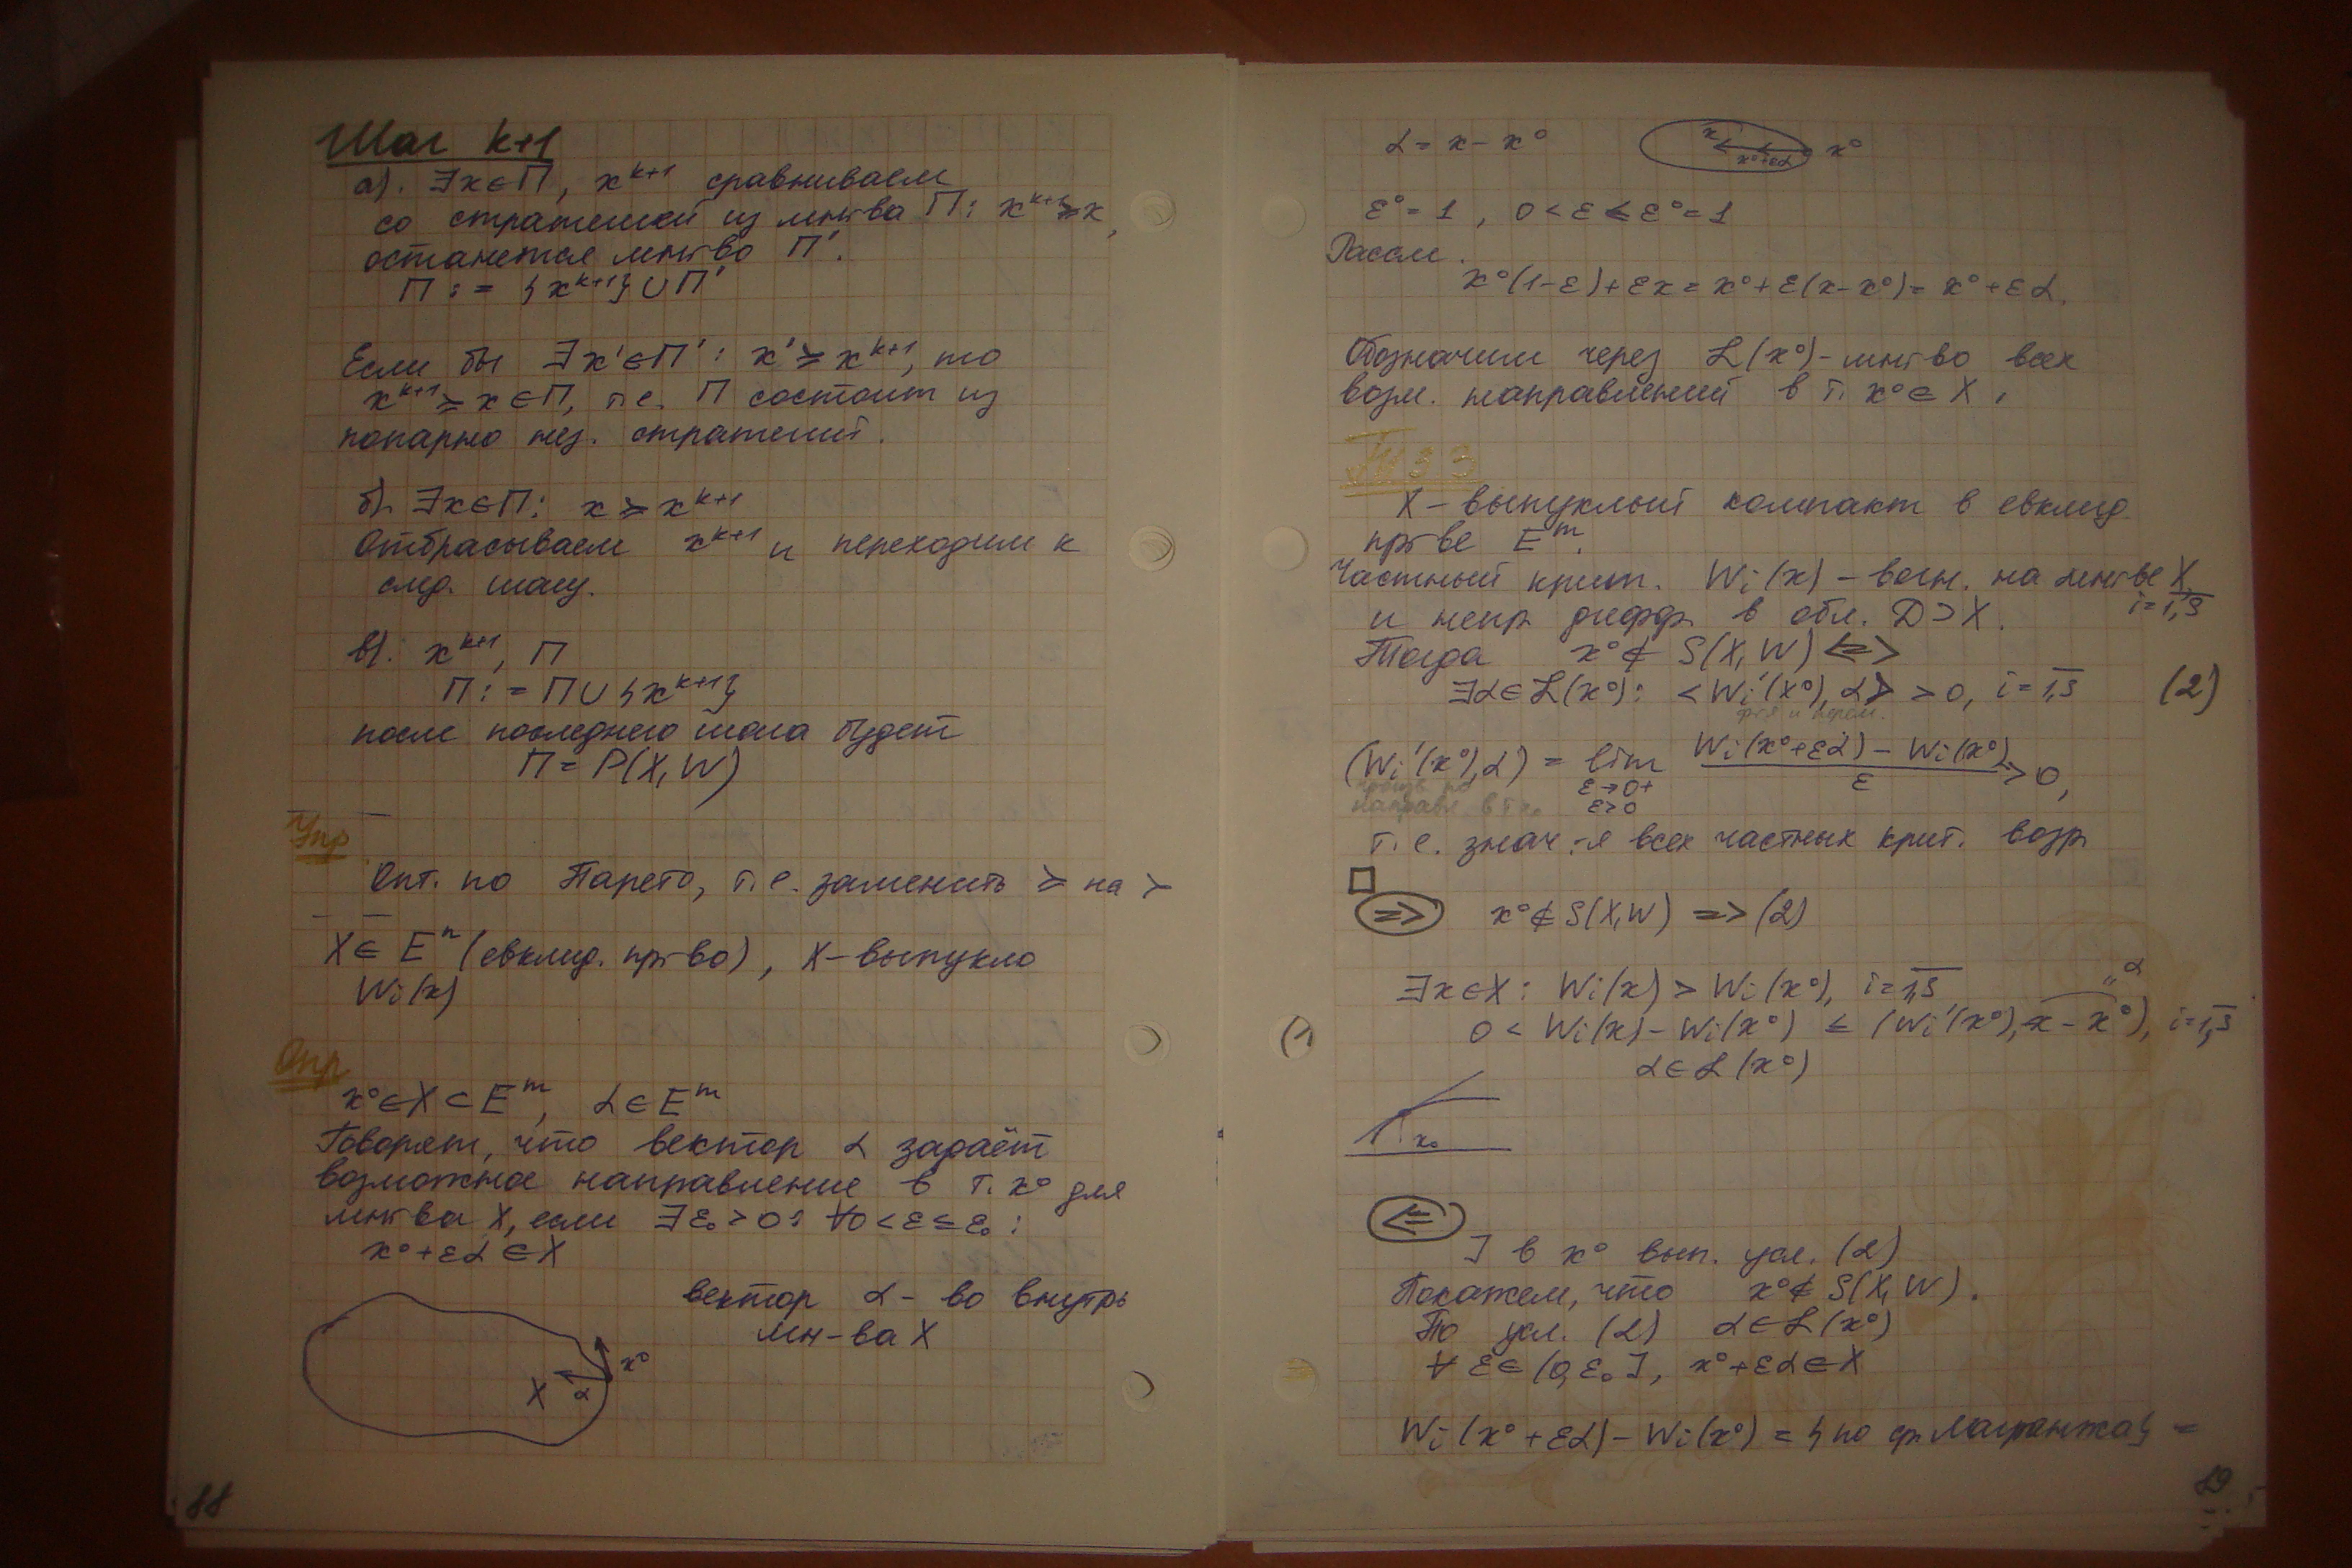 Шаг k+1
а). ∃x∈П, x^{k+1} сравниваем
со стратегией из мн-ва П: x^{k+1} ≽ x,
останется мн-во П'.
П := {x^{k+1}} ∪ П'
Если бы ∃x'∈П': x' ≽ x^{k+1}, то
x^{k+1} ≽ x ∈ П, т.е. П состоит из
попарно нез. стратегий.
б). ∃x∈П: x ≽ x^{k+1}
Отбрасываем x^{k+1} и переходим к
след. шагу.
в). x^{k+1}, П
П := П ∪ {x^{k+1}}
после последнего шага будет
П = P(X, W)
Упр
Опт. по Парето, т.е. заменить ≽ на ≻
X ∈ E^n (евклид. пр-во), X – выпукло
Wi(x)
Опр
x° ∈ X ⊂ E^m, α ∈ E^m
Говорят, что вектор α задаёт
возможное направление в т. x° для
мн-ва X, если ∃ε₀ > 0: ∀0 < ε ≤ ε₀:
x° + εα ∈ X
вектор α – во внутрь
мн-ва X
X α x°
88
α = x – x°
x x°+εα x°
ε° = 1, 0 < ε ≤ ε° = 1
Рассм.
x°(1–ε) + εx = x° + ε(x–x°) = x° + εα.
Обозначим через ℒ(x°) – мн-во всех
возм. направлений в т. x° ∈ X.
Т 33
X – выпуклый компакт в евклид.
пр-ве E^m.
Частный крит. Wi(x) – вогн. на мн-ве X, i=1,s
и непр. дифф. в обл. D ⊃ X.
Тогда x° ∉ S(X, W) <=>
∃α∈ℒ(x°): <Wi'(x°), α> > 0, i = 1,s (2)
(Wi'(x°), α) = lim ε→0+ ε>0 (Wi(x°+εα) – Wi(x°)) / ε > 0,
произв. по
направл. в т. x₀
т.е. знач-я всех частных крит. возр
□
=> x° ∉ S(X, W) => (2)
∃x∈X: Wi(x) > Wi(x°), i = 1,s
0 < Wi(x) – Wi(x°) ≤ (Wi'(x°), x – x°), i = 1,s
"α
α ∈ ℒ(x°)
x₀
<=
] в x° вып. усл. (2)
Покажем, что x° ∉ S(X, W).
По усл. (2) α ∈ ℒ(x°)
∀ ε ∈ (0, ε₀], x° + εα ∈ X
Wi(x° + εα) – Wi(x°) = {по ф. Лагранжа} =
89